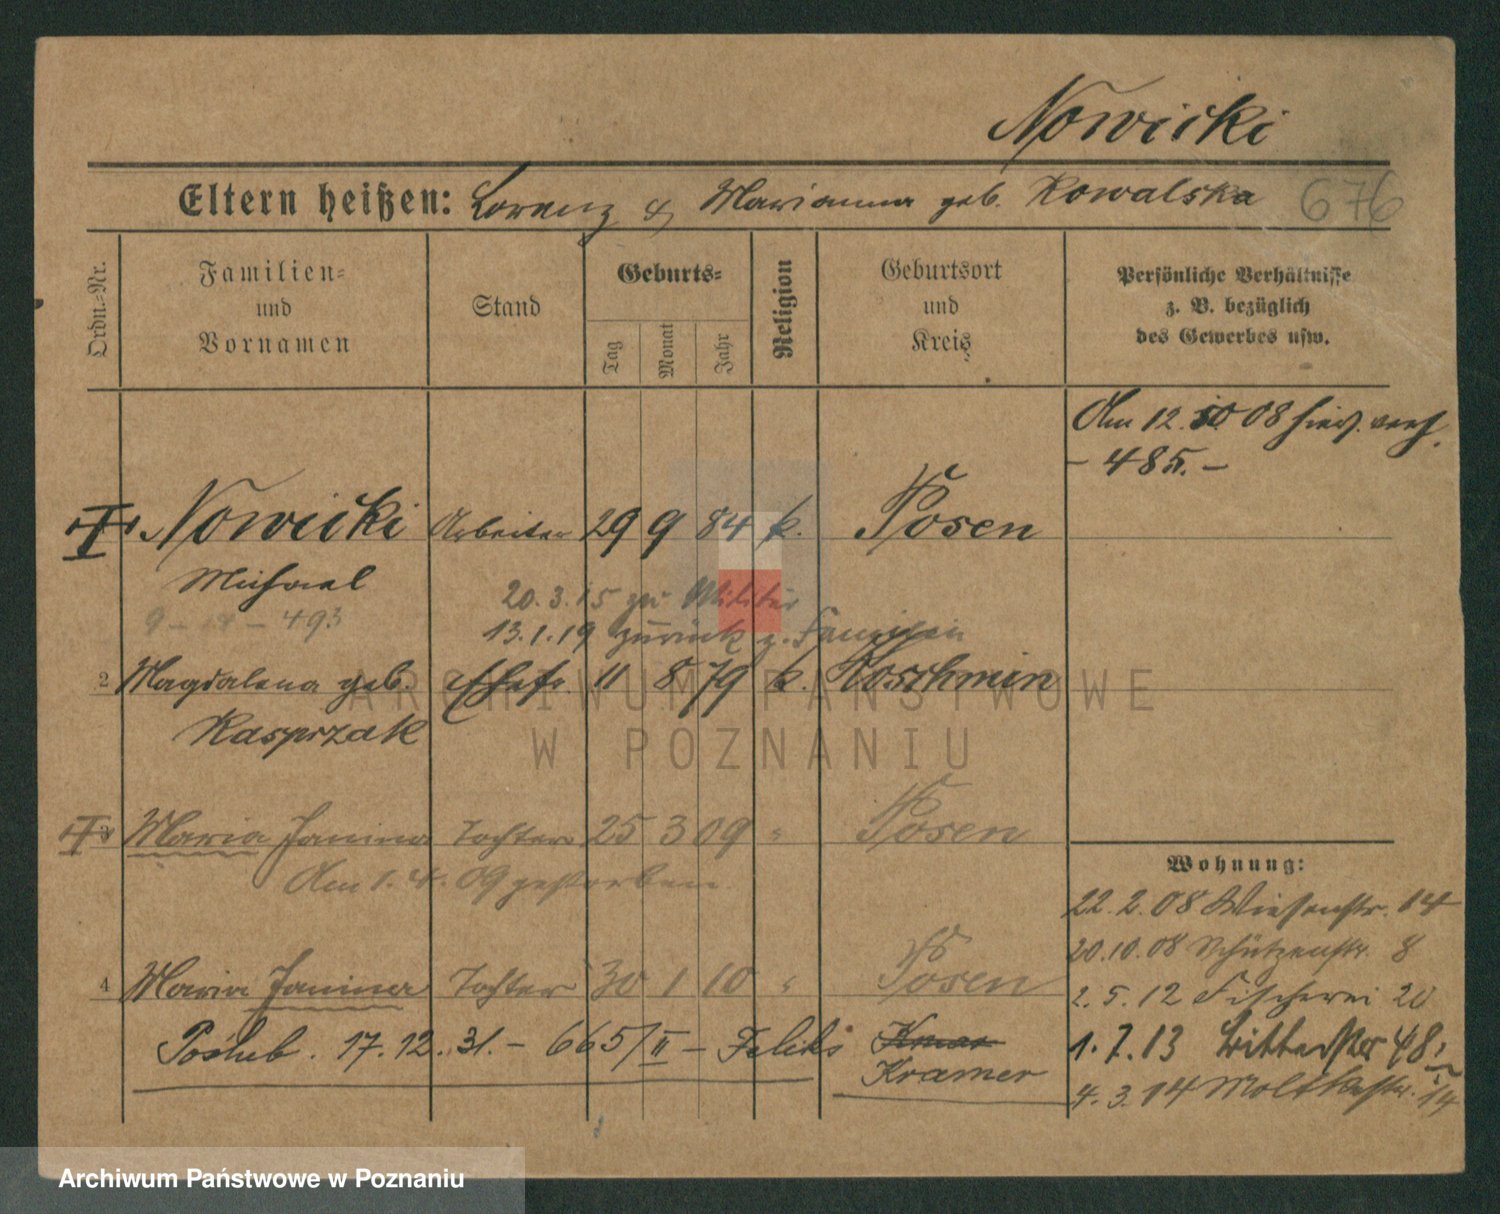 Nowicki
Eltern heißen: Lorenz & Marianna geb. Kowalska 676
Ordn.-Nr.
Familien-
und
Vornamen
Stand
Geburts-
Tag
Monat
Jahr
Religion
Geburtsort
und
Kreis
Persönliche Verhältnisse
z. B. bezüglich
des Gewerbes usw.
Am 12. 10 08 hier. verh.
- 485. -
Nowicki Arbeiter 29 9 84 k. Posen
Michael
20. 3. 15 zu Militär
9 - - 493
13. 1. 19 zurück z. Familien
2 Magdalena geb. Ehefr. 11 8 79 k. Koschmin
Kasprzak
ARCHIWUM PAŃSTWOWE
W POZNANIU
3 Maria Janina Tochter 25 3 09 " Posen
Am 1. 4. 09 gestorben
Wohnung:
22. 2. 08 Wiesenstr. 14
20. 10. 08 Schützenstr. 8
4 Maria Janina Tochter 30 1 10 " Posen
2. 5. 12 Fischerei 20
Poślub. 17. 12. 31. - 665/II - Feliks Kramer
1. 7. 13 48
4. 3. 14 Moltkestr. 14
Archiwum Państwowe w Poznaniu